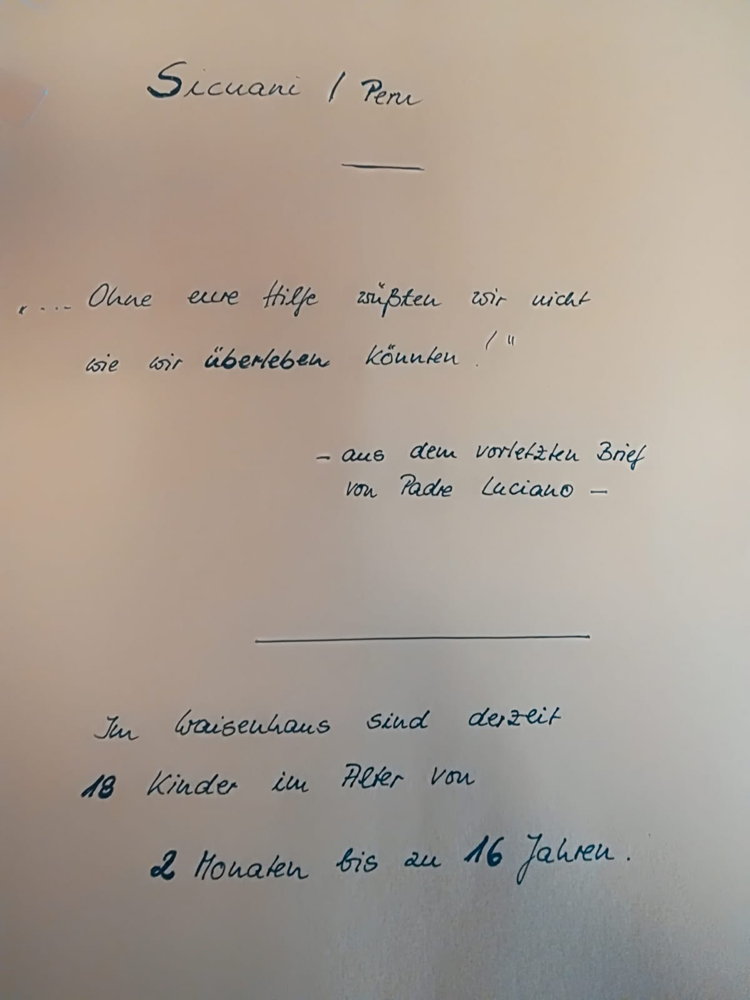 Sicuani / Peru
"... Ohne eure Hilfe wüßten wir nicht
wie wir überleben könnten!"
- aus dem vorletzten Brief
von Padre Luciano -
Im Waisenhaus sind derzeit
18 Kinder im Alter von
2 Monaten bis zu 16 Jahren.